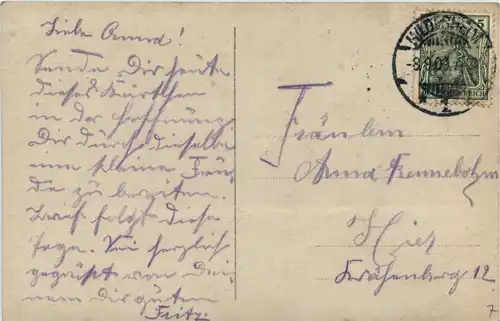 Liebe Anna!
Sende Dir heute
dieses Kärtchen
in der Hoffnung
Dir durch dieselbe
eine kleine Freu-
de zu bereiten.
Brief folgt diese
Tage. Sei herzlich
gegrüßt von Dei-
nem Dir guten
Fritz.
Fräulein
Anna
Hier
Krähenberg 12
HILDESHEIM
-8.9.09
5
REICH
7